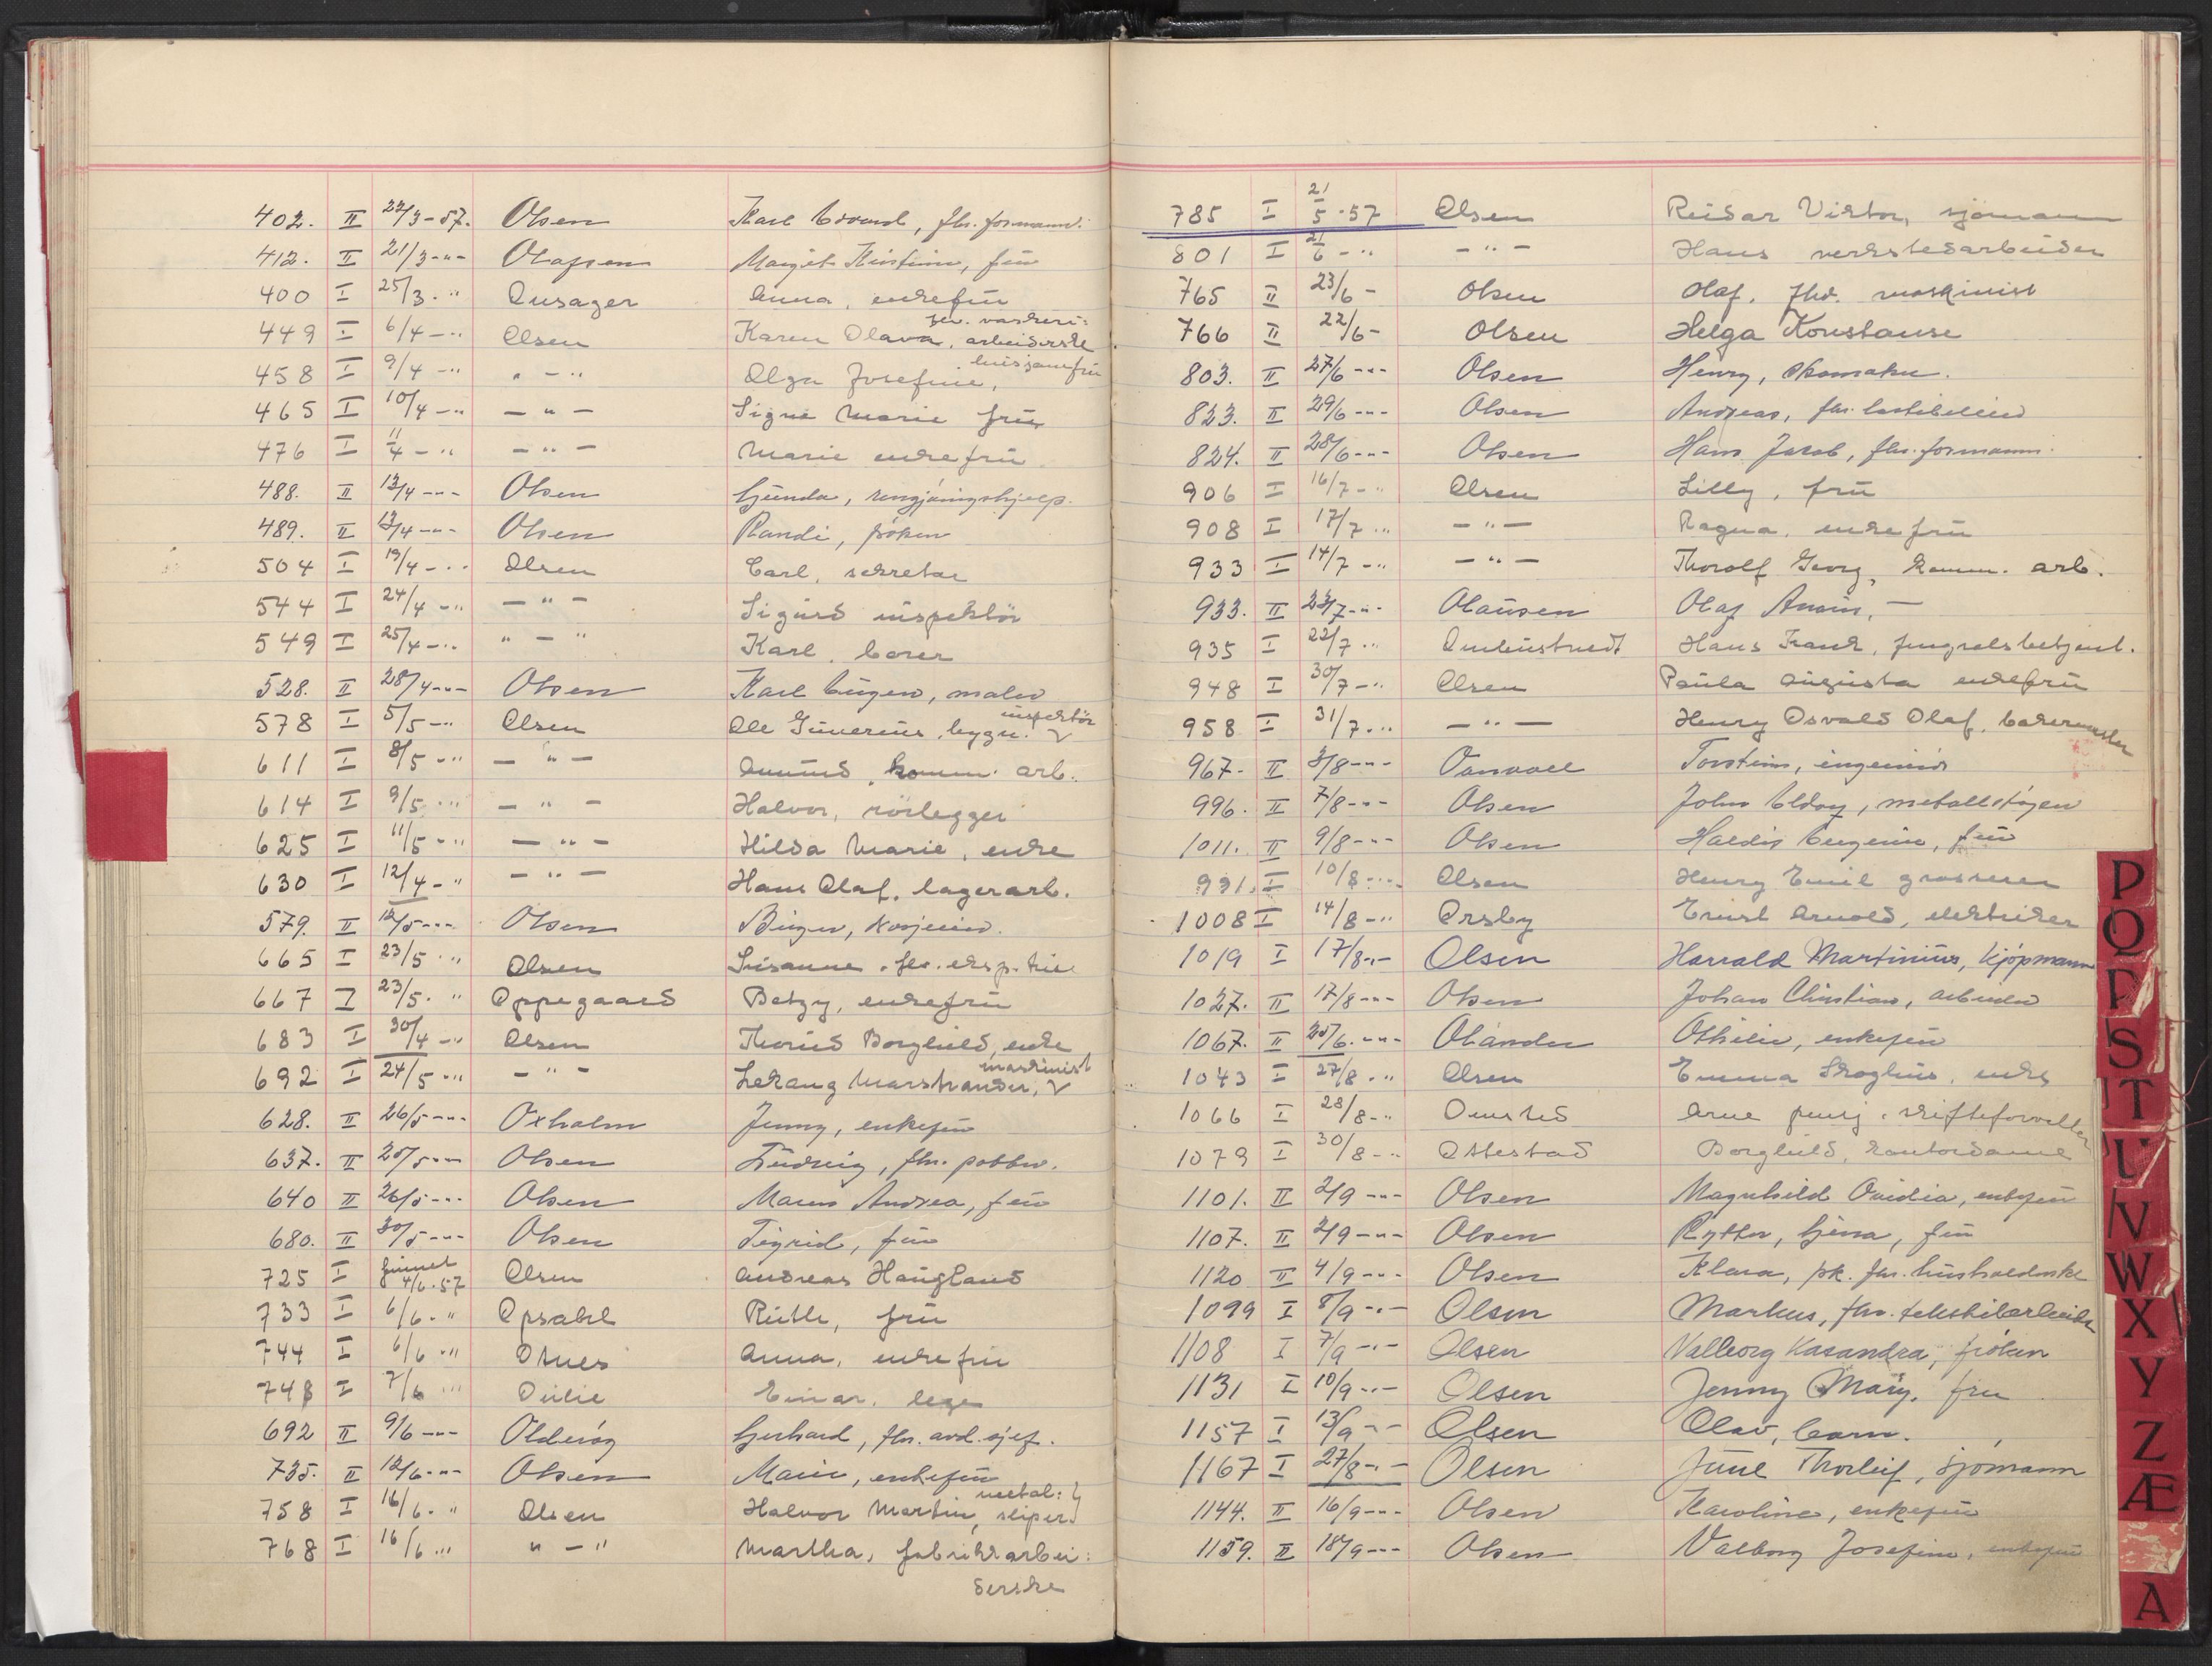 402. II 22/3-57. Olsen Karl Edvard, fhv. formann.
412. II 21/3-"- Olafsen Margit Kristine, frú
400 I 25/3 . " Ousager Anna, enkefrú
449 I 6/4 - " Olsen Karen Olava, fhv. vaskeri: arbeiderske
458 I 9/4 - " " - " Olga Josefine, húsjomfrú
465 I 10/4 - " - " - Signe Marie frú
476 I 11/4 - " - " - Marie enkefrú
488. II 12/4-"- Olsen Gúnda, rengjøringshjelp.
489. II 13/4-"- Olsen Randi, frøken
504 I 19/4 - " Olsen Carl, sekretær
544 I 24/4 - " - " - Sigúrd inspektör
549 I 25/4 - " " - " Karl, borer
528. II 28/4-"- Olsen Karl Eúgen, maler
578 I 5/5 - " Olsen Ole Gúnerius, bygn. inspektör
611 I 8/5 - " - " - Amúnd, komm. arb.
614 I 9/5 - " - " - Halvor, rörlegger
625 I 11/5 - " - " - Hilda Marie, enke
630 I 12/4 - " - " - Hans Olaf, lagerarb.
579. II 12/5-"- Olsen Birger,
665 I 23/5 . " Olsen Súsanne, fhv. eksp. trise
667 I 23/5 . " Oppegaard Betzy, enkefrú
683 I 30/4 - " Olsen Thorúd Borghild, enke
692 I 24/5 - " - " - Lekang Marstrander, maskinist
628. II 26/5-"- Oxholm Jenny, enkefrú
637. II 25/5-"- Olsen Lúdvig, fhv. pakker.
640 II 26/5-"- Olsen Maren Andrea, frú
680. II 30/5-"- Olsen Sigrid, frú
725 I fúnnet 4/6.57 Olsen Andreas Haúgland
733 I 6/6 . " Opsahl Rúth, frú
744 I 6/6 . " Otnes Anna, enkefrú
748 I 7/6 " Einar, lege
692 II 9/6-"- Olderøy Gerhard, fhv. avd. sjef.
735. II 12/6-"- Olsen Marie, enkefrú
758 I 16/6 . " Olsen Halvor Martin, metal: sliper
768 I 16/6 " " - " Martha, fabrikkarbei:
derske
785 I 21/5 - 57 Olsen Reidar Viktor, sjömann
801 I 21/6 - " - " - Hans verkstedarbeider
765 II 23/6 - Olsen Olaf, fhv. maskinist
766 II 22/6 - Olsen Helga Konstanse
803. II 27/6-"- Olsen Henry, skomaker.
823. II 29/6-"- Olsen Andreas, fhv. lastebileier
824. II 28/6-"- Olsen Hans Jacob, fhv. formann.
906 I 16/7 - " Olsen Lilly, frú
908 I 17/7 " - " - Ragna, enkefrú
933 I 14/7 - " - " - Thorolf Georg, komm. arb.
933. II 23/7-"- Olaúsen Olaf Anvin, -
935 I 22/7 " Hans Frank, fengselsbetjent.
948 I 30/7 - " Olsen Paúla Aúgústa enkefrú
958 I 31/7 " - " - Henry Osvald Olaf, bakermester
967. II 3/8-"- Torstein, ingeniør
996. II 7/8-"- Olsen John Eldoy, metallstøper
1011. II 9/8-"- Olsen Haldis Eugenie, frú
991. I 10/8 - " Olsen Henry Emil grosserer
1008 I 14/8 - " Orsby Ernst Arnold, elektriker
1019 I 17/8-"- Olsen Harrald Martiniús, kjöpmann
1027. II 17/8-"- Olsen Johan Christian, arbeider
1067. II 25/6-"- Olander Othilie, enkefrú
1043 I 27/8 . " Olsen Emma enke
1066 I 28/8 - " Omsted Arne pensj. skifteforvalter
1079 I 30/8 - " Ottestad Borghild, kontordame
1101. II 2/9-"- Olsen Magnhild Ovidia, enkefrú
1107. II 2/9-"- Olsen Rytter, Gina, frú
1120 II 4/9-"- Olsen Klara, pk. fhv. húsholderske
1099 I 8/9-"- Olsen Markus, fhv. tekstilarbeider
1108 I 7/9-"- Olsen Valborg Kasandra, fröken
1131 I 10/9-"- Olsen Jenny Mary, fru
1157 I 13/9-"- Olsen Olav, barn.
1167 I 27/8-"- Olsen Júul Thorleif, sjömann
1144. II 16/9-"- Olsen Karoline, enkefrú
1159. II 18/9-"- Olsen Valborg Josefine, enkefrú
P
Q
R
S
T
U
V
W
X
Y
Z
Æ
A